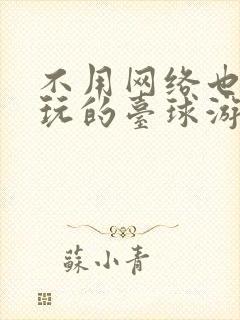 不用网络也
玩的臺球游
蘇小青